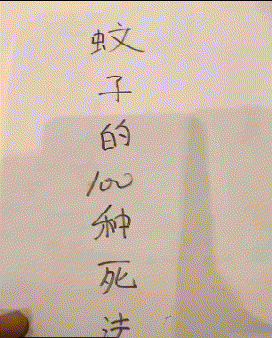 蚊子的100种死法